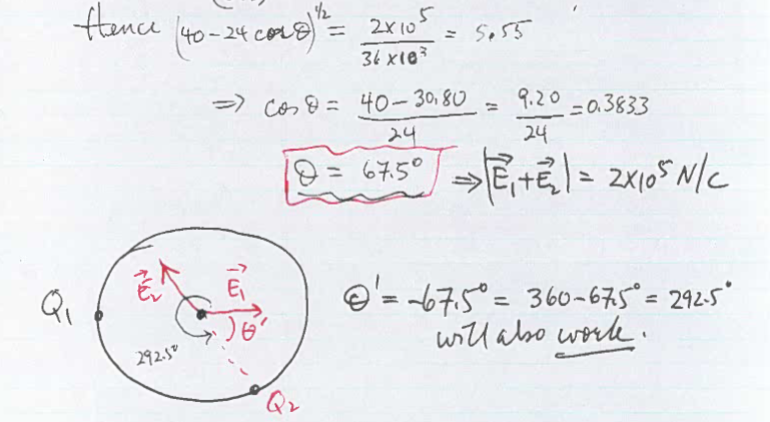 Hence (40-24 cosθ)^1/2 = 2×10^5 / 36×10^3 = 5.55
⇒ cosθ = 40-30.80 / 24 = 9.20 / 24 = 0.3833
θ = 67.5° ⇒ |E⃗₁+E⃗₂| = 2×10^5 N/C
E⃗₂ E⃗₁
Q₁ θ' θ' = -67.5° = 360-67.5° = 292.5°
292.5° will also work.
Q₂